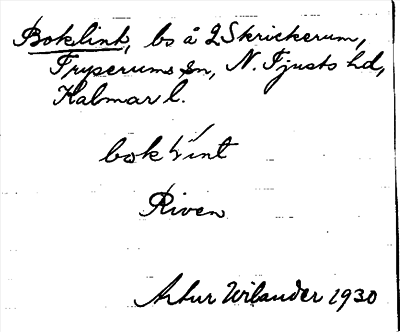 Boklint, bs å 2 Skrickerum,
Tryserums sn, N. Tjusts hd,
Kalmar l.
bok lint
Riven
Artur Wilander 1930